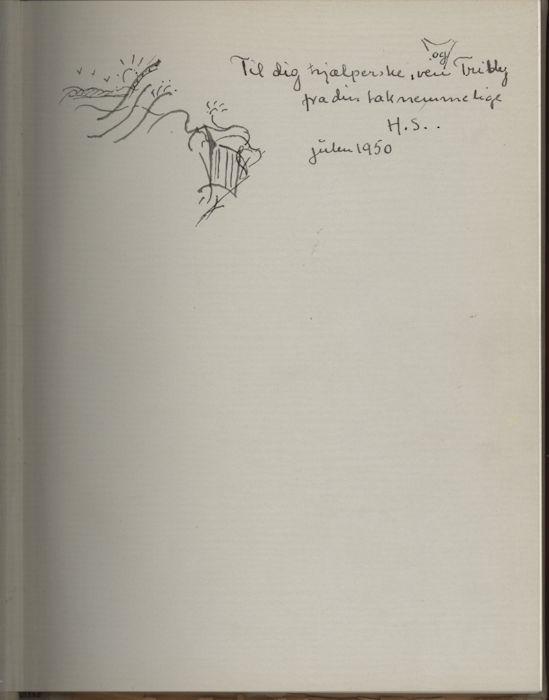 Til dig hjælperske, ven og Trilby
fra din taknemmelige
H.S..
julen 1950